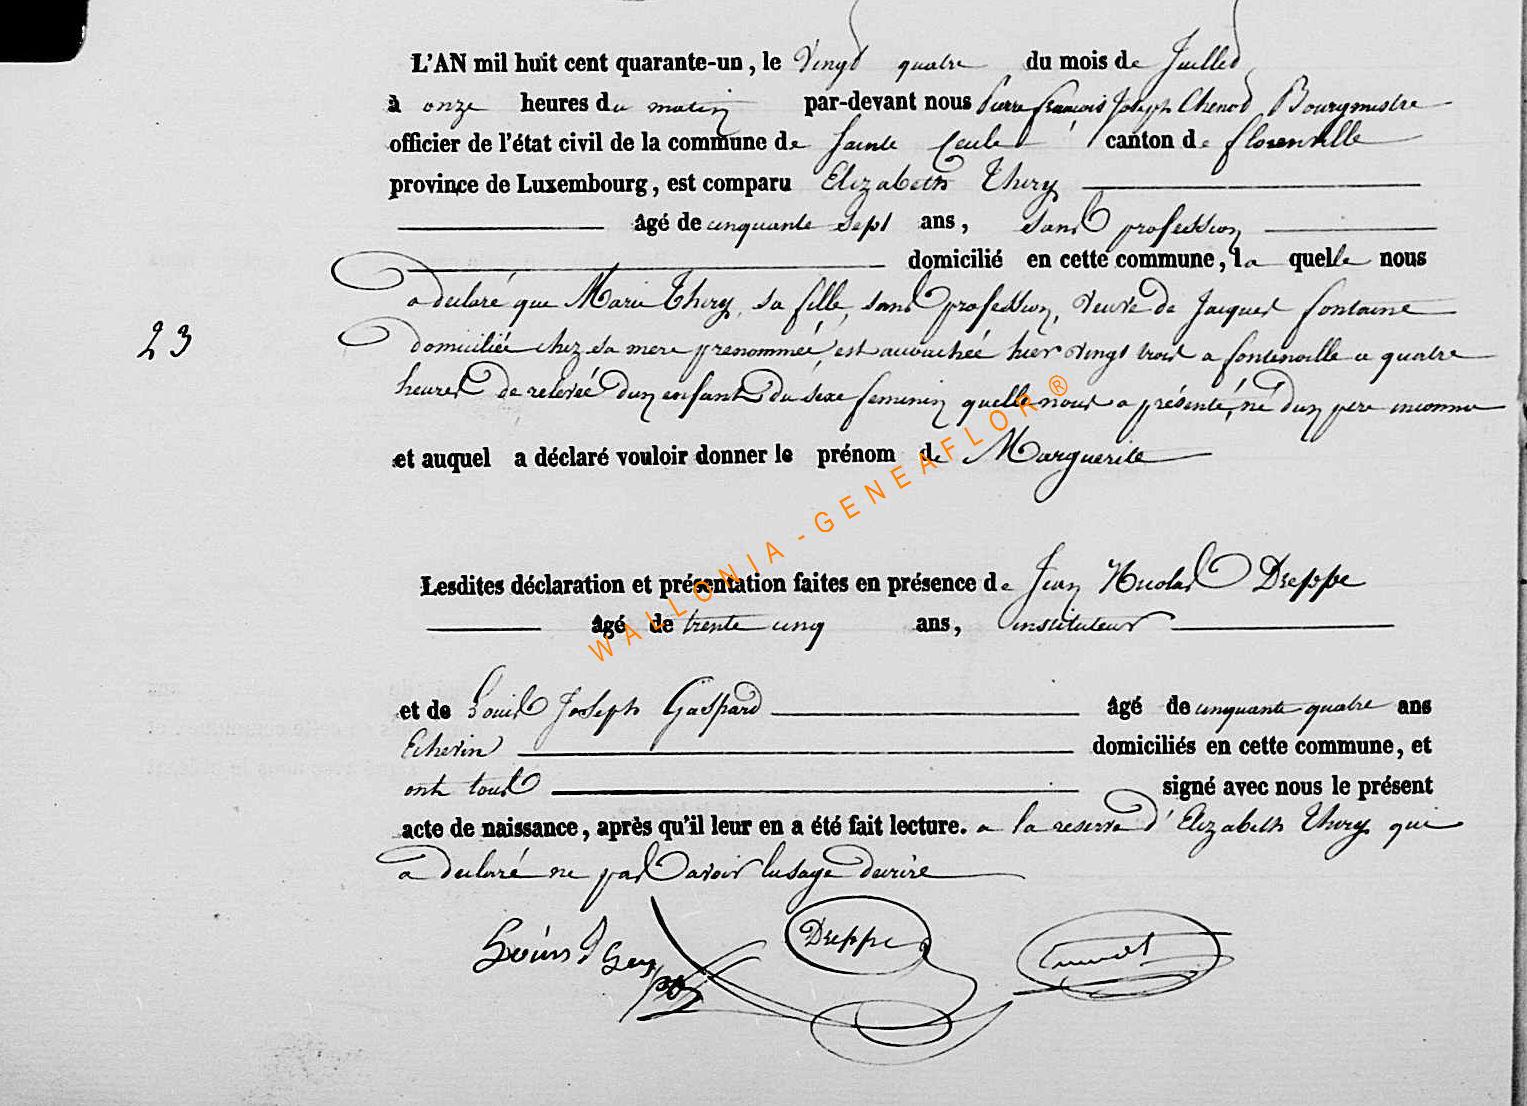 L'AN mil huit cent quarante-un, le Vingt quatre du mois de Juillet
à onze heures du matin par-devant nous Pierre François Joseph Chenot Bourgmestre
officier de l'état civil de la commune de Sainte Cecile canton de florenville
province de Luxembourg, est comparu Elizabeth Thiry
âgé de cinquante sept ans, sans profession
domicilié en cette commune, la quelle nous
a declaré que Marie Thiry, sa fille, sans profession, veuve de Jacques fontaine
23
domiciliée chez sa mere prenommée, est accouchée hier vingt trois a fontenoille a quatre
heures de relevée dun enfant du sexe feminin quelle nous a présenté, né dun pere inconnu
et auquel a déclaré vouloir donner le prénom de Marguerite
WALLONIA - GENEAFLOR ®
Lesdites déclaration et présentation faites en présence de Jean Nicolas Dreppe
âgé de trente cinq ans, instituteur
et de Louis Joseph Gaspard âgé de cinquante quatre ans
Echevin domiciliés en cette commune, et
ont tous signé avec nous le présent
acte de naissance, après qu'il leur en a été fait lecture. a la reserve d'Elizabeth Thiry qui
a declaré ne pas avoir lusage decrire
Dreppe